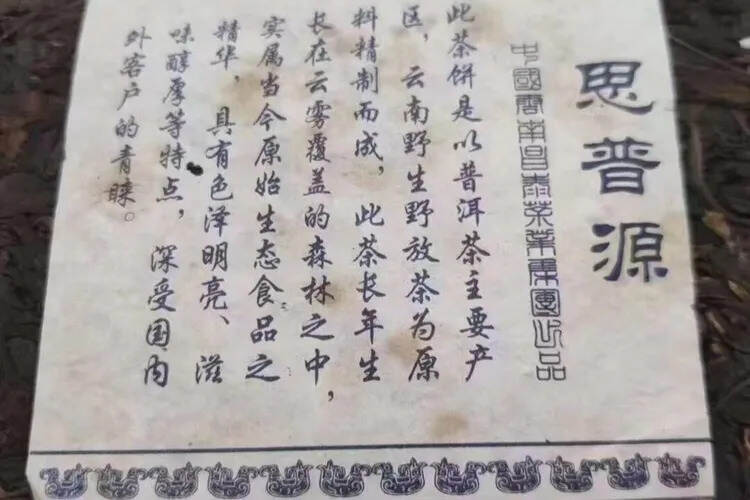 思普源
中國雲南昌泰茶業集團出品
此茶饼是以普洱茶主要产
区，云南野生野放茶为原
料精制而成，此茶长年生
长在云雾覆盖的森林之中，
实属当今原始生态食品之
精华，具有色泽明亮、滋
味醇厚等特点，深受国内
外客户的青睐。